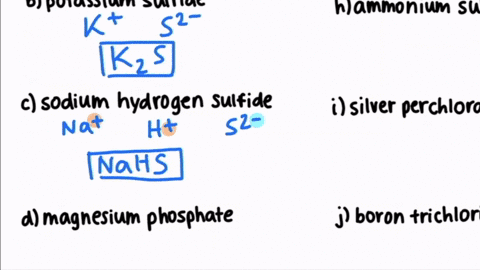 b) potassium sulfide
K+ S2-
K2S
c) sodium hydrogen sulfide
Na+ H+ S2-
NaHS
d) magnesium phosphate
h) ammonium
i) silver
j) boron